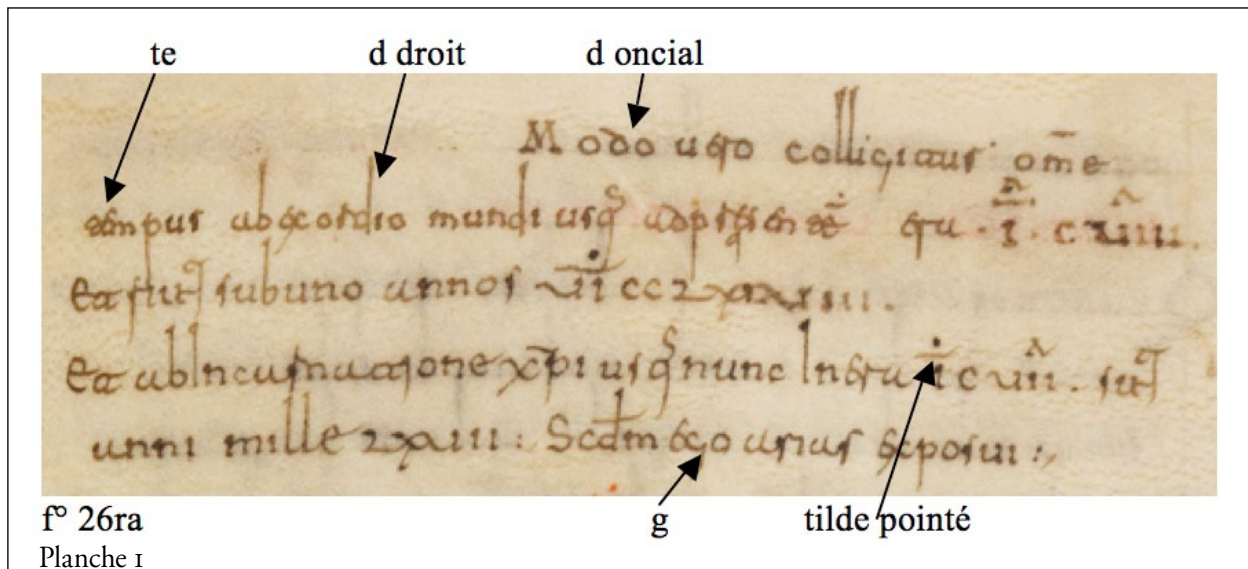 te d droit d oncial
Modo uero colligitur om̄e
tempus ab exordio mundi usq̄ era ·ī· c uiiii.
Et sut̄ subuno annos
Et ab Incarnatione xp̄i usq̄ nunc In era ī c sut̄
anni mille lxxiii: Scdm ego arias exposui :
f° 26ra g tilde pointé
Planche 1